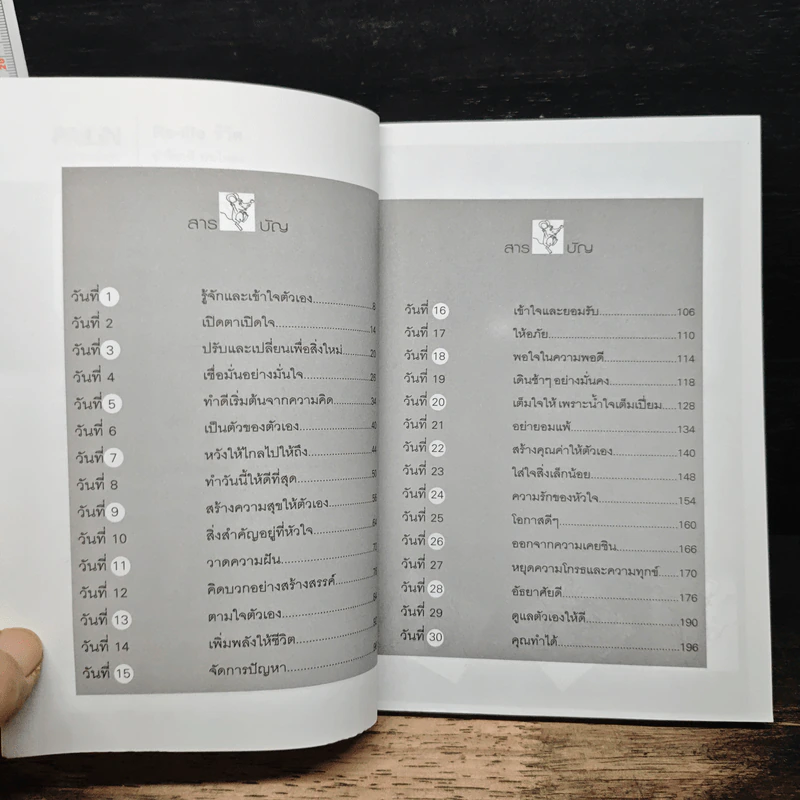 สารบัญ
วันที่ 1 รู้จักและเข้าใจตัวเอง 8
วันที่ 2 เปิดตาเปิดใจ 14
วันที่ 3 ปรับและเปลี่ยนเพื่อสิ่งใหม่
วันที่ 4 เชื่อมั่นอย่างมั่นใจ 26
วันที่ 5 ทำดีเริ่มต้นจากความคิด 34
วันที่ 6 เป็นตัวของตัวเอง 40
วันที่ 7 หวังให้ไกลไปให้ถึง 44
วันที่ 8 ทำวันนี้ให้ดีที่สุด 50
วันที่ 9 สร้างความสุขให้ตัวเอง
วันที่ 10 สิ่งสำคัญอยู่ที่หัวใจ
วันที่ 11 วาดความฝัน
วันที่ 12 คิดบวกอย่างสร้างสรรค์
วันที่ 13 ตามใจตัวเอง
วันที่ 14 เพิ่มพลังให้ชีวิต
วันที่ 15 จัดการปัญหา
สารบัญ
วันที่ 16 เข้าใจและยอมรับ 106
วันที่ 17 ให้อภัย 110
วันที่ 18 พอใจในความพอดี 114
วันที่ 19 เดินช้าๆ อย่างมั่นคง 118
วันที่ 20 เต็มใจให้ เพราะน้ำใจเต็มเปี่ยม 128
วันที่ 21 อย่ายอมแพ้ 134
วันที่ 22 สร้างคุณค่าให้ตัวเอง 140
วันที่ 23 ใส่ใจสิ่งเล็กน้อย 148
วันที่ 24 ความรักของหัวใจ 154
วันที่ 25 โอกาสดีๆ 160
วันที่ 26 ออกจากความเคยชิน 166
วันที่ 27 หยุดความโกรธและความทุกข์ 170
วันที่ 28 อัธยาศัยดี 176
วันที่ 29 ดูแลตัวเองให้ดี 190
วันที่ 30 คุณทำได้ 196